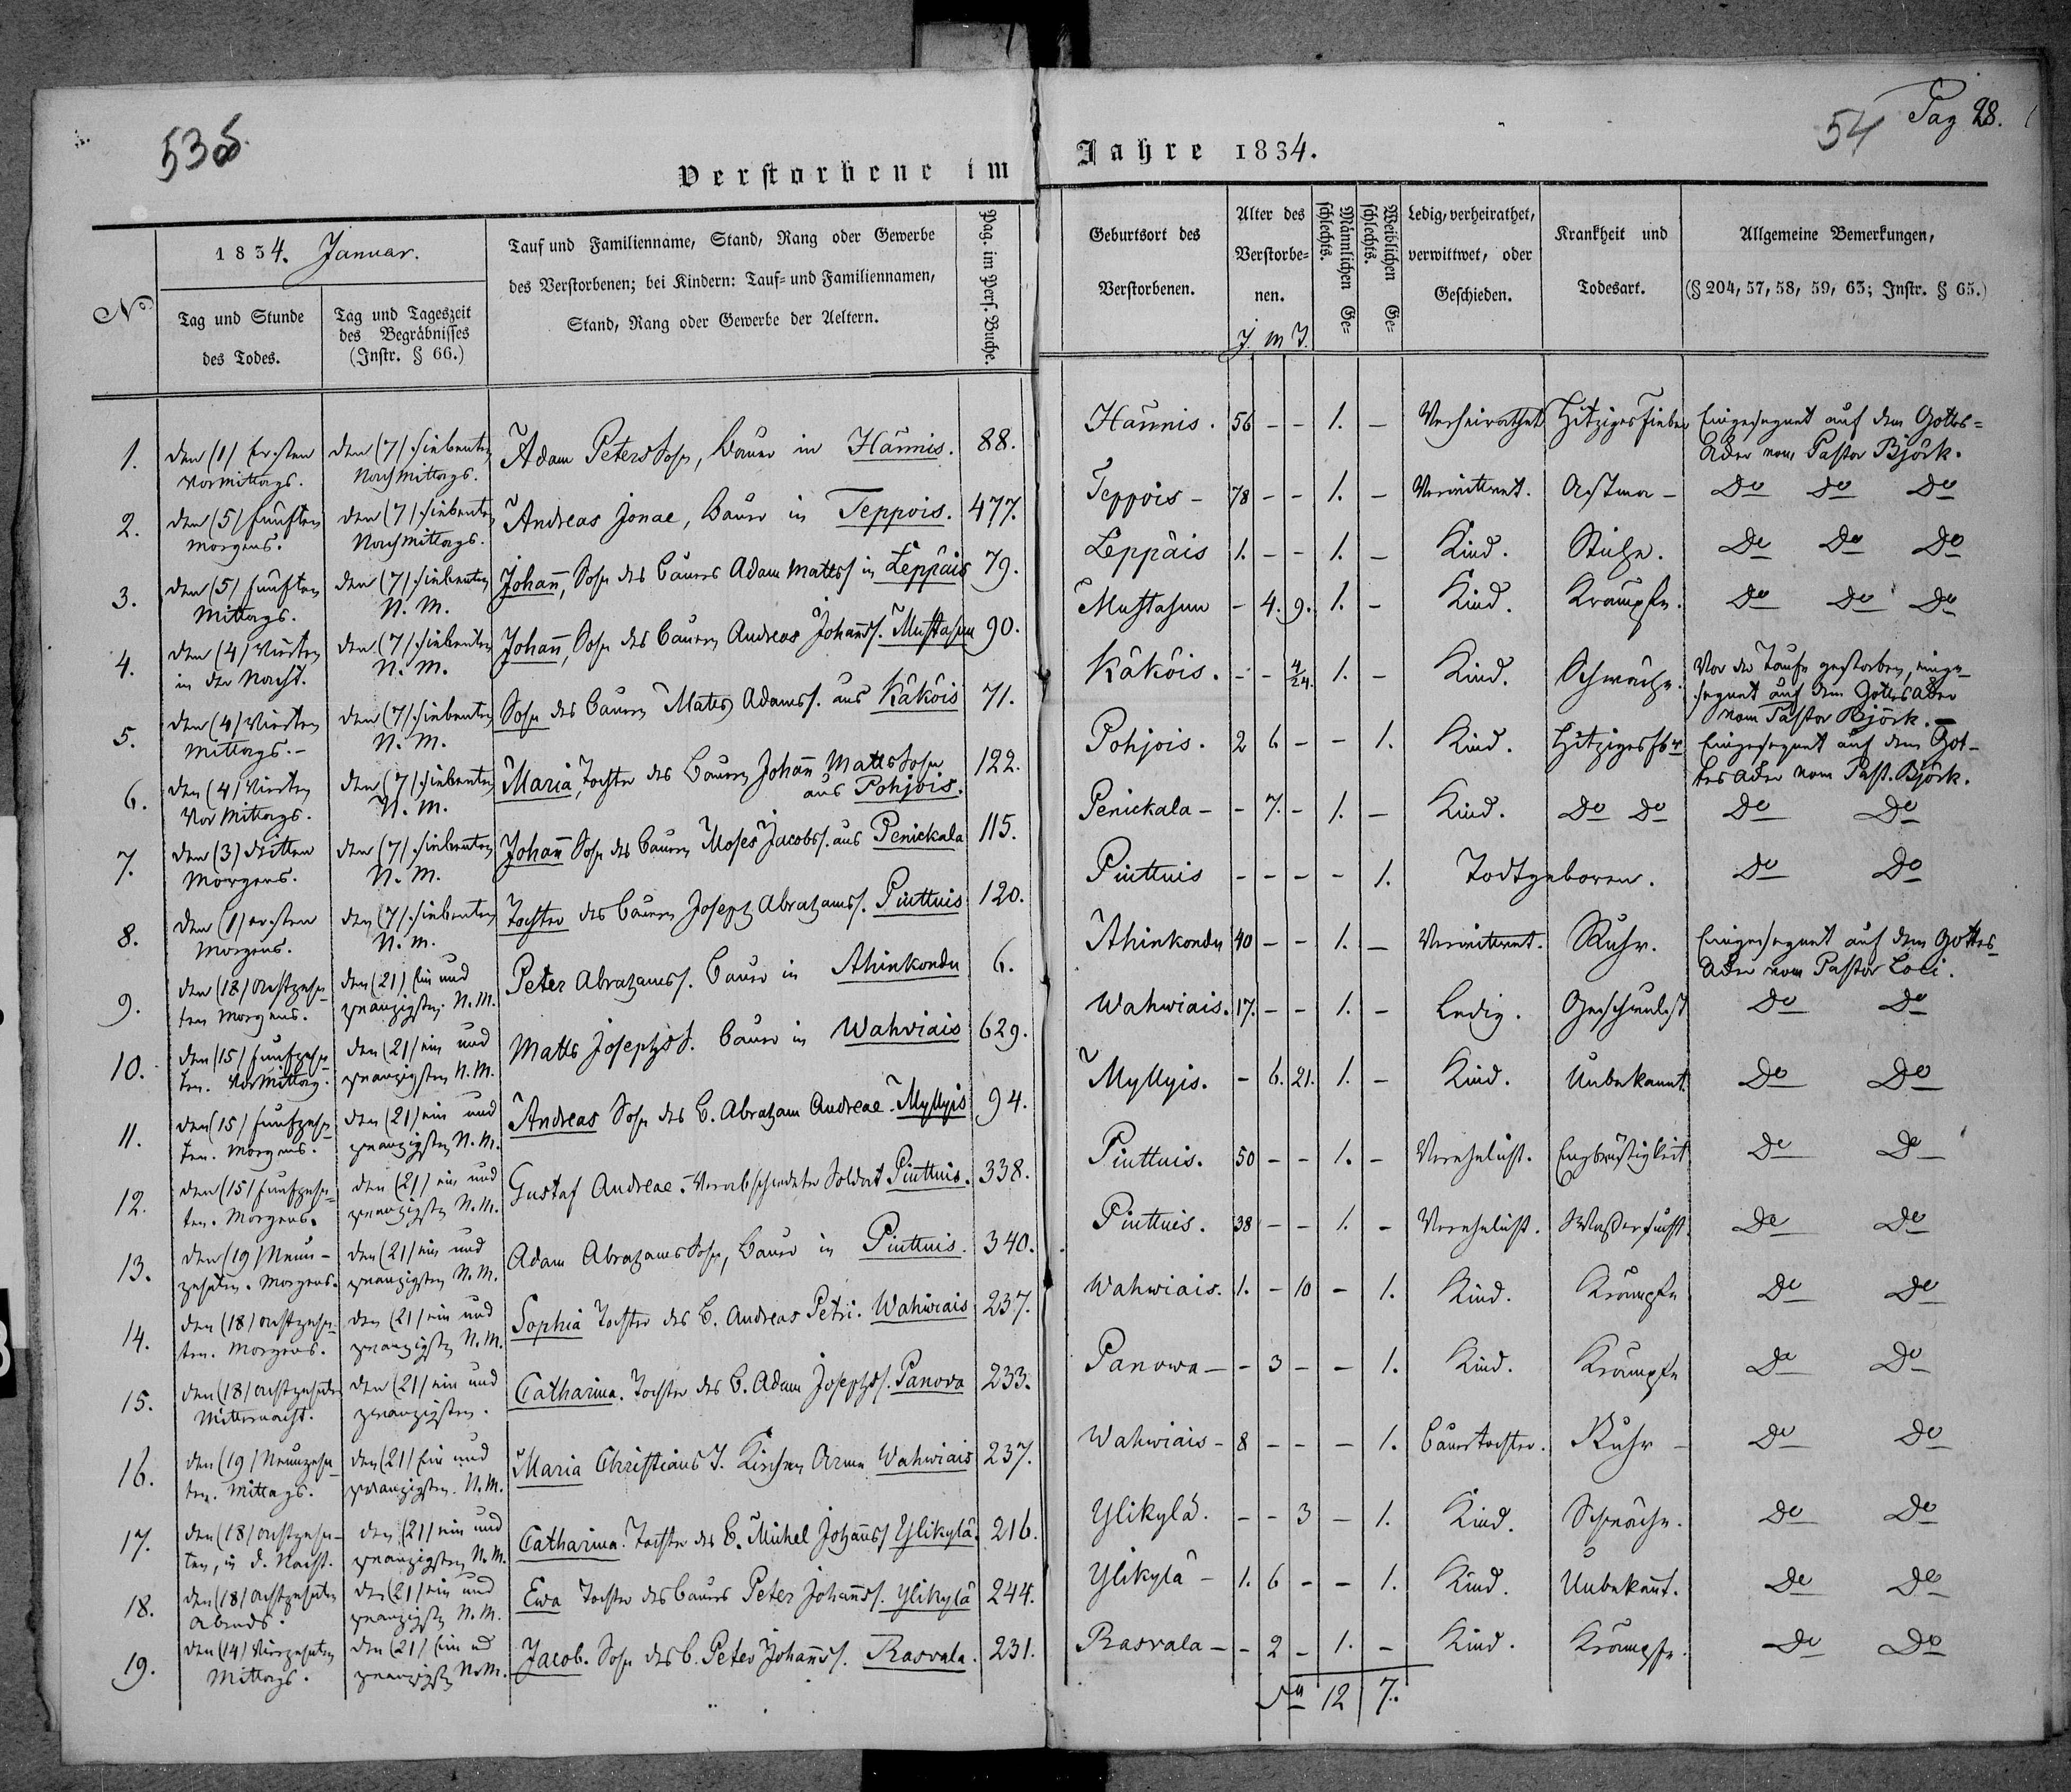 535.
54 Pag 28.
Verstorbene im Jahre 1834.
No
1834. Januar.
Tag und Stunde des Todes.
Tag und Tageszeit des Begräbnisses (Instr. § 66.)
Tauf und Familienname, Stand, Rang oder Gewerbe
des Verstorbenen; bei Kindern: Tauf- und Familiennamen,
Stand, Rang oder Gewerbe der Aeltern.
Pag. im Pers. Buche.
Geburtsort des Verstorbenen.
Alter des Verstorbe-nen.
J. M T.
Männlichen Ge-schlechts.
Weiblichen Ge-schlechts.
Ledig, verheirathet, verwittwet, oder Geschieden.
Krankheit und Todesart.
Allgemeine Bemerkungen,
(§ 204, 57, 58, 59, 63; Instr. § 65.)
1. den (1) Ersten Vormittags. den (7) siebenten Nachmittags. Adam Peters Sohn, Bauer in Hännis. 88. Hännis. 56 - - 1. - Verheirathet Hitziges Fieber Eingesegnet auf dem Gottes=
Acker vom Pastor Björk.
2. den (5) fünften Morgens. den (7) siebenten Nachmittags. Andreas Jonae, Bauer in Teppois. 477. Teppois - 78 - - 1. - Verwittwet. Astma - Do Do Do
3. den (5) fünften Mittags. den (7) siebenten N. M. Johann, Sohn des Bauers Adam Matts in Leppäis 79. Leppäis 1. - - 1. - Kind. Do Do Do
4. den (4) Vierten in der Nacht. den (7) siebenten N. M. Johann, Sohn des Bauern Andreas Johanns. Mustasuu 90. Mustasuu - 4. 9. 1. - Kind. Krämpfe. Do Do Do
5. den (4) Vierten Mittags. - den (7) siebenten N. M. Sohn des Bauern Mats Adams. aus Käköis 71. Käköis. - - 4/24. 1. - Kind. Schwäche. Vor der Taufe gestorben, einge-
segnet auf dem Gottesacker
vom Pastor Björk. -
6. den (4) Vierten Vormittags. den (7) siebenten N. M. Maria, Tochter des Bauern Johann Matts Sohn
aus Pohjois. 122. Pohjois. 2 6 - - 1. Kind. Hitziges Eingesegnet auf dem Got-
tesacker vom Past. Björk.
7. den (3) dritten Morgens. den (7) siebenten N. M. Johann Sohn des Bauern Moses Jacobs. aus Penickala 115. Penickala - - 7. - 1. - Kind. Do Do Do Do
8. den (1) ersten Morgens. den (7) siebenten N. M. Tochter des Bauern Joseph Abrahams. Piuttuis 120. Piuttuis - - - - 1. Todtgeboren. Do Do
9. den (18) achtzehn-ten Morgens. den (21) Ein und zwanzigsten N. M. Peter Abrahams. Bauer in Ahinkondu 6. Ahinkondu 40 - - 1. - Verwittwet. Ruhr. Eingesegnet auf dem Gottes
Acker vom Pastor Loci.
10. den (15) fünfzehn-ten. Vormittag. den (21) ein und zwanzigsten N. M. Matts Josephs S. Bauer in Wahviais 629. Wahwiais. 17. - - 1. - Ledig. Geschwulst Do Do
11. den (15) fünfzehn-ten. Morgens. den (21) ein und zwanzigsten N. M. Andreas Sohn des B. Abraham Andreae. Myllyis 94. Myllyis. - 6. 21. 1. - Kind. Unbekannt. Do Do
12. den (15) fünfzehn-ten. Morgens. den (21) ein und zwanzigsten N. M. Gustaf Andreae. Verabschiedeter Soldat Piuttuis. 338. Piuttuis. 50 - - 1. - Verehelicht. Engbrüstigkeit Do Do
13. den (19) Neun-zehnten. Morgens. den (21) ein und zwanzigsten N. M. Adam Abrahams Sohn, Bauer in Piuttuis. 340. Piuttuis. 38 - - 1. - Verehelicht. Waßersucht. Do Do
14. den (18) achtzehn-ten. Morgens. den (21) ein und zwanzigsten N. M. Sophia Tochter des B. Andreas Petri. Wahwiais 237. Wahwiais. 1. - 10 - 1. Kind. Krämpfe Do Do
15. den (18) achtzehnten Mitternacht. den (21) ein und zwanzigsten. Catharina. Tochter des B. Adam Josephs. Panova 233. Panowa - - 3 - - 1. Kind. Krämpfe Do Do
16. den (19) Neunzehn-ten. Mittags. den (21) Ein und zwanzigsten. N. M. Maria Christians T. Arme Wahwiais 237. Wahwiais - 8 - - - 1. Bauertochter. Ruhr - Do Do
17. den (18) achtzehn-ten, in d. Nacht. den (21) ein und zwanzigsten N. M. Catharina. Tochter des B. Michel Johanns Ylikylä. 216. Ylikylä. - - 3 - 1. Kind. Schwäche. Do Do
18. den (18) achtzehnten Abends. den (21) ein und zwanzigsten N. M. Ewa Tochter des Bauers Peter Johanns. Ylikylä 244. Ylikylä - 1. 6 - - 1. Kind. Unbekannt. Do Do
19. den (14) Vierzehnten Mittags. den (21) Ein und zwanzigsten N. M. Jacob. Sohn des B. Peter Johanns. Rasvala. 231. Rasvala - - 2 - 1. - Kind. Krämpfe. Do Do
Sa 12 7.